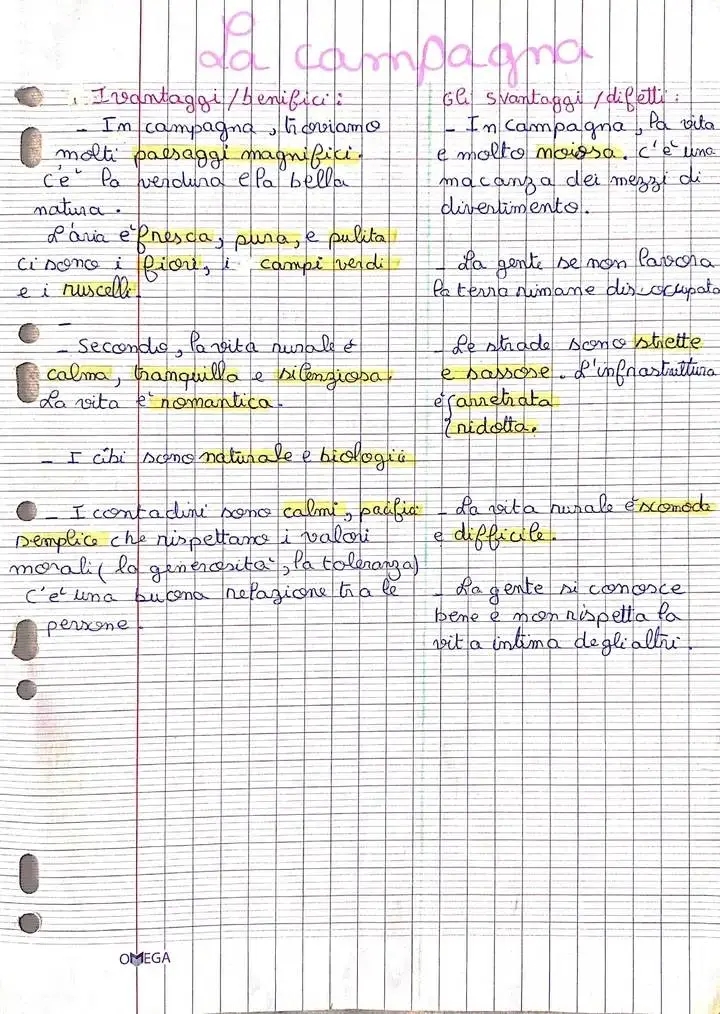 La campagna
I vantaggi/benifici:
- In campagna, troviamo
molti paesaggi magnifici.
c'è la verdura e la bella
natura.
L'aria è fresca, pura, e pulita
ci sono i fiori, i campi verdi
e i ruscelli.
- Secondo, la vita rurale è
calma, tranquilla e silenziosa.
La vita è romantica.
- I cibi sono naturale e biologici
- I contadini sono calmi, pacifici
semplice che rispettano i valori
morali (la generosità, la toleranza)
c'è una buona relazione tra le
persone.
Gli svantaggi/difetti:
- In campagna, la vita
e molto noiosa. c'è una
macanza dei mezzi di
divertimento.
- La gente se non lavora
la terra rimane disoccupata
- Le strade sono strette
e sassose. L'infrastruttura
è arretrata
ridotta.
- La vita rurale è scomode
e difficile.
- La gente si conosce
bene e non rispetta la
vita intima degli altri.
OMEGA